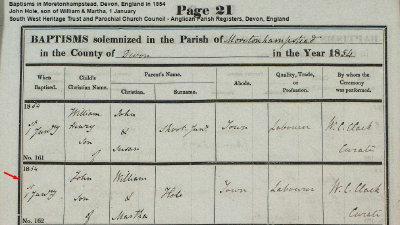 Baptisms in Moretonhampstead, Devon, England in 1854
John Hole, son of William & Martha, 1 January
South West Heritage Trust and Parochial Church Council - Anglican Parish Registers, Devon, England
Page 21
BAPTISMS solemnized in the Parish of Moretonhampstead
in the County of Devon in the Year 1854
When Baptised. Child's Christian Name. Parent's Name. Christian. Surname. Abode. Quality, Trade, or Profession. By whom the Ceremony was performed.
1854
1st Janry
No. 161
William Henry Son of
John & Susan
Town
Labourer
W. C. Clack Curate
1854
1st Janry
No. 162
John Son of
William & Martha
Hole
Town
Labourer
W. C. Clack Curate